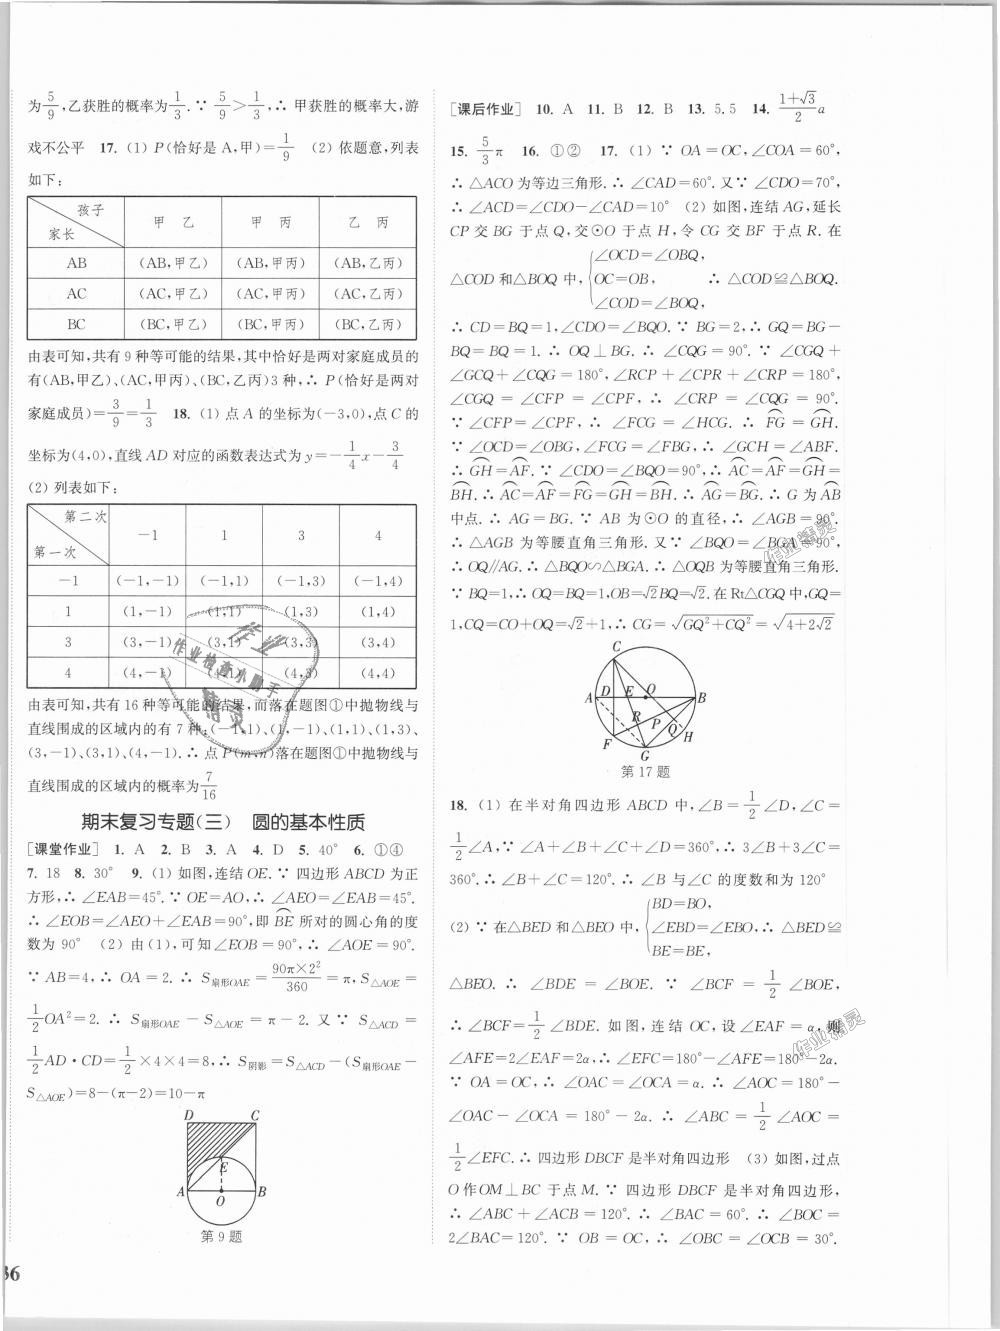 为5/9,乙获胜的概率为1/3.∵ 5/9>1/3,∴ 甲获胜的概率大,游
戏不公平 17. (1) P(恰好是A,甲)=1/9 (2) 依题意,列表
如下:
孩子
家长
甲 乙 甲 丙 乙 丙
AB (AB,甲乙) (AB,甲丙) (AB,乙丙)
AC (AC,甲乙) (AC,甲丙) (AC,乙丙)
BC (BC,甲乙) (BC,甲丙) (BC,乙丙)
由表可知,共有9种等可能的结果,其中恰好是两对家庭成员的
有(AB,甲乙)、(AC,甲丙)、(BC,乙丙)3种,∴ P(恰好是两对
家庭成员)=3/9=1/3 18. (1) 点A的坐标为(-3,0),点C的
坐标为(4,0),直线AD对应的函数表达式为y=-1/4x-3/4
(2) 列表如下:
第二次
第一次
-1 1 3 4
-1 (-1,-1) (-1,1) (-1,3) (-1,4)
1 (1,-1) (1,1) (1,3) (1,4)
3 (3,-1) (3,1) (3,3) (3,4)
4 (4,-1) (4,1) (4,3) (4,4)
由表可知,共有16种等可能的结果,而落在题图①中抛物线与
直线围成的区域内的有7种:(-1,1)、(1,-1)、(1,1)、(1,3)、
(3,-1)、(3,1)、(4,-1).∴ 点P(m,n)落在题图①中抛物线与
直线围成的区域内的概率为7/16
期末复习专题(三) 圆的基本性质
[课堂作业] 1. A 2. B 3. A 4. D 5. 40° 6. ①④
7. 18 8. 30° 9. (1) 如图,连结OE.∵ 四边形ABCD为正
方形,∴ ∠EAB=45°.∵ OE=AO,∴ ∠AEO=∠EAB=45°.
∴ ∠EOB=∠AEO+∠EAB=90°,即⌒BE所对的圆心角的度
数为90° (2) 由(1),可知∠EOB=90°,∴ ∠AOE=90°.
∵ AB=4,∴ OA=2.∴ S扇形OAE=90π×2²/360=π,S△AOE=
1/2OA²=2.∴ S扇形OAE-S△AOE=π-2. 又∵ S△ACD=
1/2AD·CD=1/2×4×4=8,∴ S阴影=S△ACD-(S扇形OAE-
S△AOE)=8-(π-2)=10-π
D C
E
A O B
第9题
36
[课后作业] 10. A 11. B 12. B 13. 5.5 14. (1+√3)/2 a
15. 5/3π 16. ①② 17. (1) ∵ OA=OC,∠COA=60°,
∴ △ACO为等边三角形.∴ ∠CAD=60°.又∵ ∠CDO=70°,
∴ ∠ACD=∠CDO-∠CAD=10° (2) 如图,连结AG,延长
CP交BG于点Q,交⊙O于点H,令CG交BF于点R.在
△COD和△BOQ中,{∠OCD=∠OBQ, OC=OB, ∠COD=∠BOQ, ∴ △COD≌△BOQ.
∴ CD=BQ=1,∠CDO=∠BQO.∵ BG=2,∴ GQ=BG-
BQ=BQ=1.∴ OQ⊥BG.∴ ∠CQG=90°.∵ ∠CGQ+
∠GCQ+∠CQG=180°,∠RCP+∠CPR+∠CRP=180°,
∠CGQ=∠CFP=∠CPF,∴ ∠CRP=∠CQG=90°.
∵ ∠CFP=∠CPF,∴ ∠FCG=∠HCG.∴ ⌒FG=⌒GH.
∵ ∠OCD=∠OBG,∠FCG=∠FBG,∴ ∠GCH=∠ABF.
∴ ⌒GH=⌒AF.∵ ∠CDO=∠BQO=90°,∴ ⌒AC=⌒AF=⌒GH=
⌒BH.∴ ⌒AC=⌒AF=⌒FG=⌒GH=⌒BH.∴ ⌒AG=⌒BG.∴ G为⌒AB
中点.∴ AG=BG.∵ AB为⊙O的直径,∴ ∠AGB=90°.
∴ △AGB为等腰直角三角形.又∵ ∠BQO=∠BGA=90°,
∴ OQ∥AG.∴ △BQO∽△BGA.∴ △OQB为等腰直角三角形.
∵ BQ=1,∴ OQ=BQ=1,OB=√2BQ=√2.在Rt△CGQ中,GQ=
1,CQ=CO+OQ=√2+1,∴ CG=√(GQ²+CQ²)=√(4+2√2)
C
A D E O B
R P Q
F H
G
第17题
18. (1) 在半对角四边形ABCD中,∠B=1/2∠D,∠C=
1/2∠A,∵ ∠A+∠B+∠C+∠D=360°,∴ 3∠B+3∠C=
360°.∴ ∠B+∠C=120°.∴ ∠B与∠C的度数和为120°
(2) ∵ 在△BED和△BEO中,{BD=BO, ∠EBD=∠EBO, BE=BE, ∴ △BED≌
△BEO.∴ ∠BDE=∠BOE.∵ ∠BCF=1/2∠BOE,
∴ ∠BCF=1/2∠BDE. 如图,连结OC,设∠EAF=α,则
∠AFE=2∠EAF=2α,∴ ∠EFC=180°-∠AFE=180°-2α.
∵ OA=OC,∴ ∠OAC=∠OCA=α.∴ ∠AOC=180°-
∠OAC-∠OCA=180°-2α.∴ ∠ABC=1/2∠AOC=
1/2∠EFC.∴ 四边形DBCF是半对角四边形 (3) 如图,过点
O作OM⊥BC于点M.∵ 四边形DBCF是半对角四边形,
∴ ∠ABC+∠ACB=120°.∴ ∠BAC=60°.∴ ∠BOC=
2∠BAC=120°.∵ OB=OC,∴ ∠OBC=∠OCB=30°.
作业精灵
作业检查小助手
作业
精灵
作业精灵